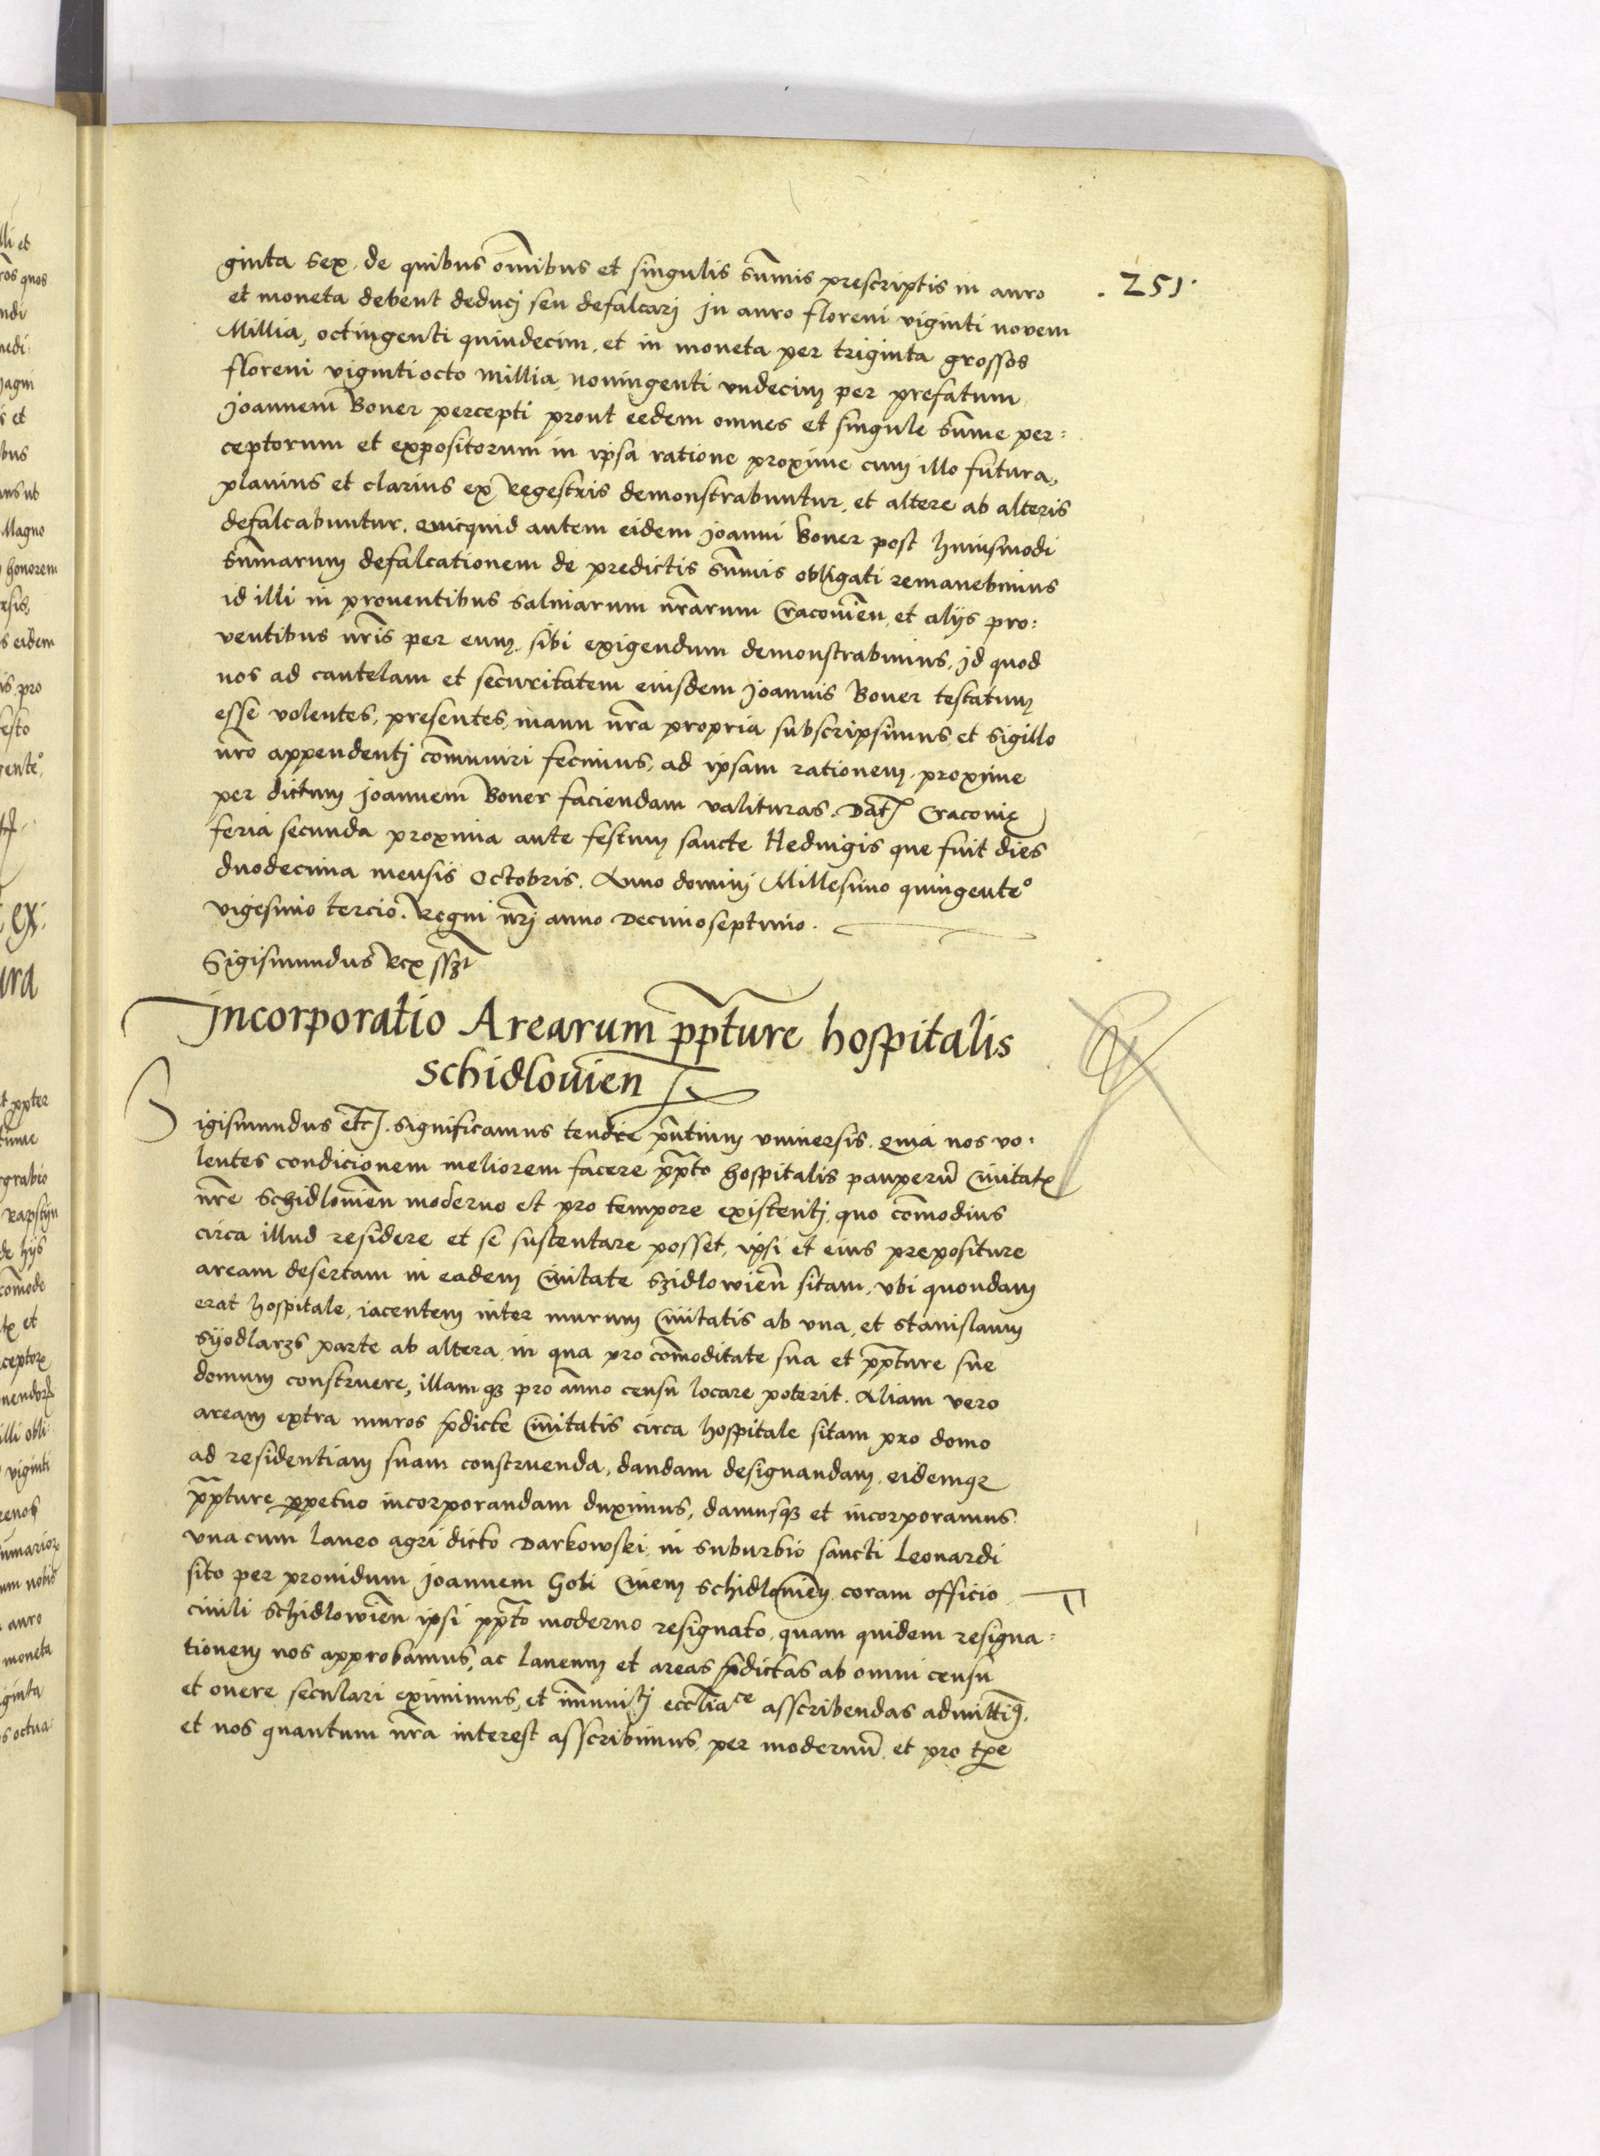 . 251 .
ginta sex. de quibus om̄ibus et singulis sum̄is prescriptis in auro
et moneta debent deducj seu defalcarj Jn auro floreni viginti novem
Millia, octingenti quindecim, et in moneta per triginta grossos
floreni vigintiocto millia, noningenti vndecim per prefatum
Joannem Boner percepti prout eedem omnes et singule sum̄e per:
ceptorum et expositorum in ipsa ratione proxime cum illo futura,
planius et clarius ex Regestris demonstrabuntur, et altere ab alteris
defalcabuntur. Quicquid autem eidem Joanni Boner post huiusmodi
sum̄arum defalcationem de predictis sum̄is obligati remanebimus
id illi in proventibus salinarum nr̄arum Cracovien̄, et alijs pro:
ventibus nr̄is per eum sibi exigendum demonstrabimus, Jd quod
nos ad cautelam et securitatem eiusdem Joannis Boner testatum
esse volentes, presentes, manu nr̄a propria subscripsimus et sigillo
nr̄o appendentj com̄uniri fecimus, ad ipsam rationem proxime
per dictum Joannem Boner faciendam valituras. Dat̄ Cracovię
feria secunda proxima ante festum sancte Hedvigis que fuit dies
duodecima mensis Octobris. Anno dominj Millesimo quingente°
vigesimo tercio. Regni nr̄j anno Decimoseptimo.
Sigismundus Rex sszt
Incorporatio Arearum pp̄ture hospitalis
Schidlovien̄
Sigismundus etc̄. Significamus tenore pn̄tium vniversis. Quia nos vo:
lentes condicionem meliorem facere pp̄to hospitalis pauperū Civitatꝭ
nr̄e Schidlovien̄ moderno et pro tempore existentj, quo com̄odius
circa illud residere et se sustentare posset, ipsi et eius prepositure
aream desertam in eadem Civitate Szidlowien̄ sitam, vbi quondam
erat hospitale, iacentem inter murum Civitatis ab vna, et Stanislaum
Syodlarzs parte ab altera, in qua pro com̄oditate sua et pp̄ture sue
domum construere, illamqꝫ pro an̄uo censu locare poterit. Aliam vero
aream extra muros p̄dicte Civitatis circa hospitale sitam pro domo
ad residentiam suam construenda, dandam designandam, eidemqꝫ
pp̄ture ꝑpetuo incorporandam duximus, damusqꝫ et incorporamus
vna cum laneo agri dicto Darkowski in suburbio sancti Leonardi
sito per providum Joannem Gobi Civem Schidlovien̄ coram officio
civili Schidlowien̄ ipsi pp̄to moderno resignato, quam quidem resigna:
tionem nos approbamus, ac laneum et areas p̄dictas ab omni censu
et onere seculari eximimus, et im̄unitj eccl̄iace asscribendas admittimꝰ.
et nos quantum nr̄a interest asscribimus, per modernū et pro tp̄e